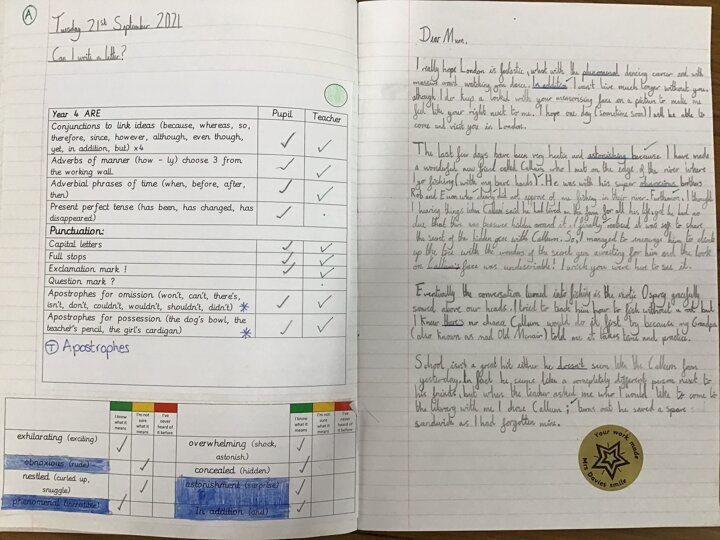 A
Tuesday 21st September 2021
Can I write a letter?
Year 4 ARE Pupil Teacher
Conjunctions to link ideas (because, whereas, so,
therefore, since, however, although, even though,
yet, in addition, but) x4
Adverbs of manner (how - ly) choose 3 from
the working wall.
Adverbial phrases of time (when, before, after,
then)
Present perfect tense (has been, has changed, has
disappeared)
Punctuation:
Capital letters
Full stops
Exclamation mark !
Question mark ?
Apostrophes for omission (won't, can't, there's,
isn't, don't, couldn't, wouldn't, shouldn't, didn't) *
Apostrophes for possession (the dog's bowl, the
teacher's pencil, the girl's cardigan) *
T Apostrophes
I know what it means
I'm not sure what it means
I've never heard of it before
I know what it means
I'm not sure what it means
I've never heard of it before
exhilarating (exciting)
obnoxious (rude)
nestled (curled up,
snuggle)
phenomenal (incredible)
overwhelming (shock,
astonish)
concealed (hidden)
astonishment (surprise)
In addition (and)
Dear Mum,
I really hope London is fantastic, what with the phenomenal dancing career and with
massive crowds watching you dance. In addition I can't live much longer without you,
although I do keep a locket with your mesmerising face on a picture to make me
feel like your right next to me. I hope one day (sometime soon) I will be able to
come and visit you in London.
The last few days have been very hectic and astonishing because I have made
a wonderful new friend called Callum who I met on the edge of the river where
I go fishing (with my bare hands). He was with his super obnoxious brothers
Rob and Euan who clearly did not approve of me fishing in their river. Furthermore, I thought
I hearing things when Callum said he had lived on the farm for all his life yet he had no
clue that this was treasure hidden around it. I finally realised it was safe to share
the secret of the hidden gem with Callum. So, I managed to encourage him to climb
up the tree with the wonders of the secret gem awaiting for him and the look
on Callum's face was undescribable! I wish you were here to see it.
Eventually the conversation turned into fishing as the exotic Osprey gracefully
soared above our heads. I tried to teach him how to fish without a rod but
I knew there's no chance Callum would do it first try because my Grandpa
(also known as mad Old Mcnair) told me it takes time and practice.
School isn't a great hit either he doesn't seem like the Callum from
yesterday. In fact he seems like a completely different person next to
his friends, but when the teacher asked me who I would like to come to
the library with me I chose Callum; turns out he saved a spare
sandwich as I had forgotten mine.
Your work made
Mrs Davies smile